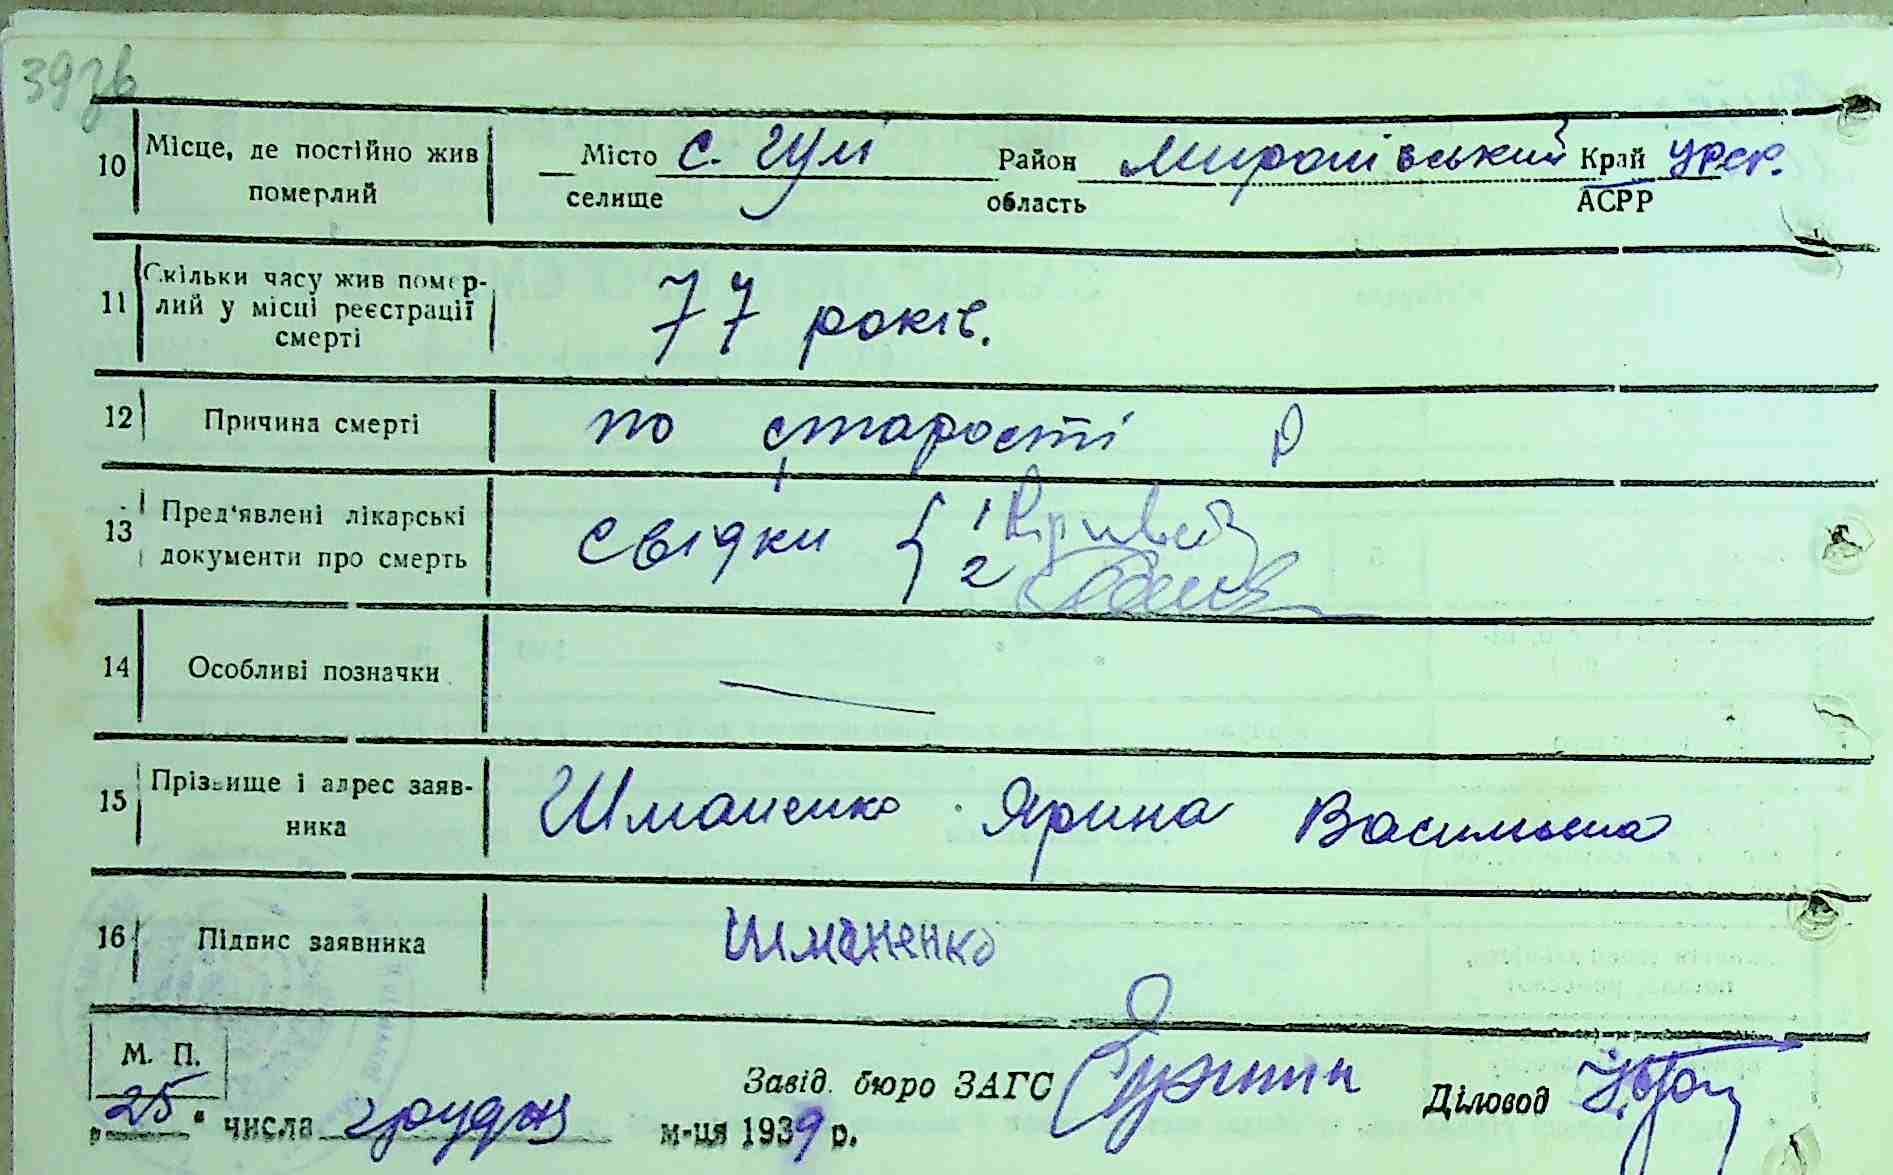 10 Місце, де постійно жив померлий Місто селище с. Гулі Район область Миропівський Край АСРР УРСР.
11 Скільки часу жив померлий у місці реєстрації смерті 77 років.
12 Причина смерті по старості
13 Пред'явлені лікарські документи про смерть свідки { 1 2
14 Особливі позначки —
15 Прізвище і адрес заявника Шманенко Ярина Василівна
16 Підпис заявника Шманенко
М. П.
Завід. бюро ЗАГС Діловод
„25" числа грудня м-ця 1939 р.